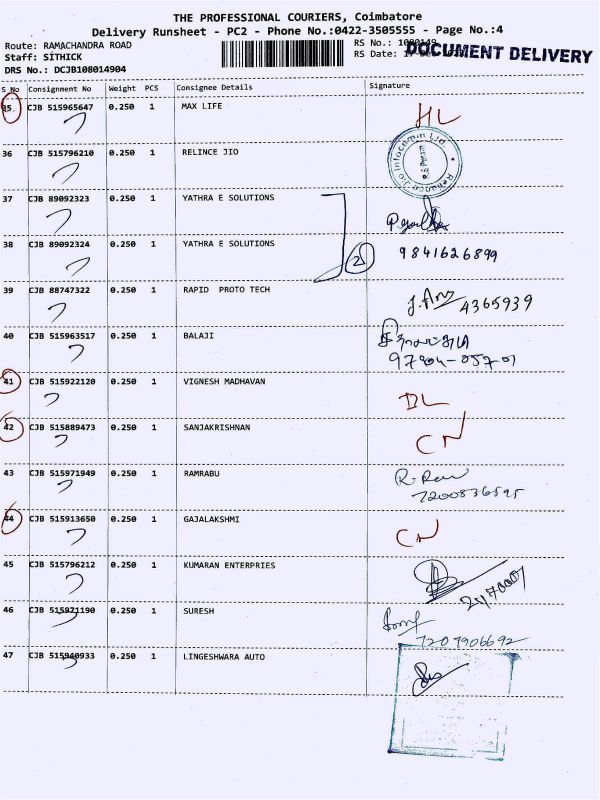 THE PROFESSIONAL COURIERS, Coimbatore
Delivery Runsheet - PC2 - Phone No.:0422-3505555 - Page No.:4
Route: RAMACHANDRA ROAD
RS No.:
DOCUMENT DELIVERY
Staff: SITHICK
RS Date:
DRS No.: DCJB108014904
S No Consignment No Weight PCS Consignee Details Signature
35 CJB 515965647 0.250 1 MAX LIFE HL
36 CJB 515796210 0.250 1 RELINCE JIO
Reliance Jio Infocomm Ltd.
37 CJB 89092323 0.250 1 YATHRA E SOLUTIONS
38 CJB 89092324 0.250 1 YATHRA E SOLUTIONS 2 9841626899
39 CJB 88747322 0.250 1 RAPID PROTO TECH 4365939
40 CJB 515963517 0.250 1 BALAJI
41 CJB 515922120 0.250 1 VIGNESH MADHAVAN DL
42 CJB 515889473 0.250 1 SANJAKRISHNAN CN
43 CJB 515971949 0.250 1 RAMRABU
7200836595
44 CJB 515913650 0.250 1 GAJALAKSHMI CN
45 CJB 515796212 0.250 1 KUMARAN ENTERPRIES
46 CJB 515971190 0.250 1 SURESH
7207906692
47 CJB 515940933 0.250 1 LINGESHWARA AUTO